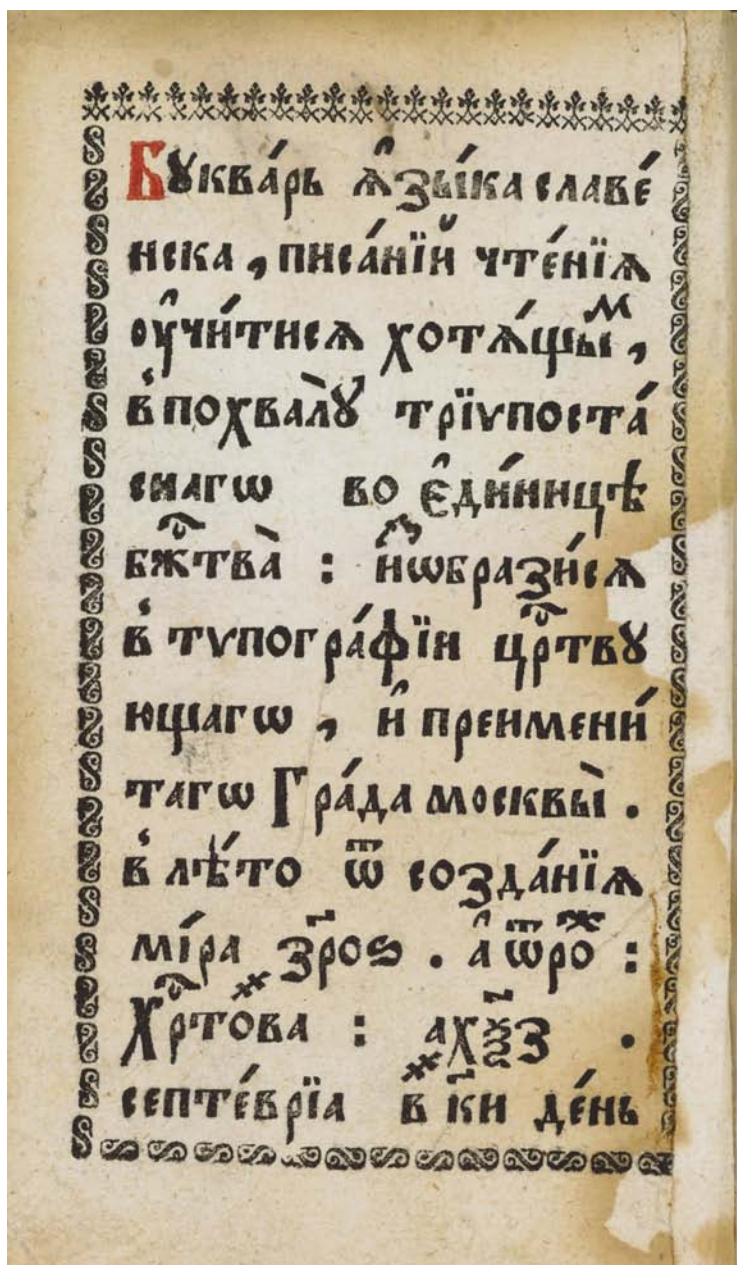 Бꙋква́рь ꙗ҆зы́ка славе́
нска , писа́нїй чте́нїѧ
ᲂу҆чи́тисѧ хотѧ́щыⷨ ,
в̾ похвалꙋ̀ трїѵпоста́
снагѡ во є҆ди́ницѣ
бж҇тва̀ : и҆ꙁѡбрази́сѧ
в̾ тѵпогра́фїи цр҇твꙋ
ющагѡ , и҆ преимени́
тагѡ Гра́да москвы̀ .
в̾ лѣ́то ѿ созда́нїѧ
мі́ра ҂зр҃оѕ . а҆ ѿ роⷤ :
Хр҇то́ва : ҂ах҃ѯз .
септе́врїа в̾ к҃и де́нь